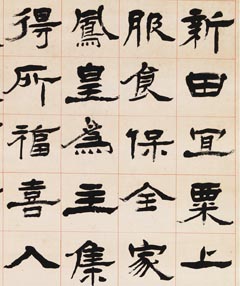 新田宜粟上
服食保全家
鳳皇為主集
得所福喜入